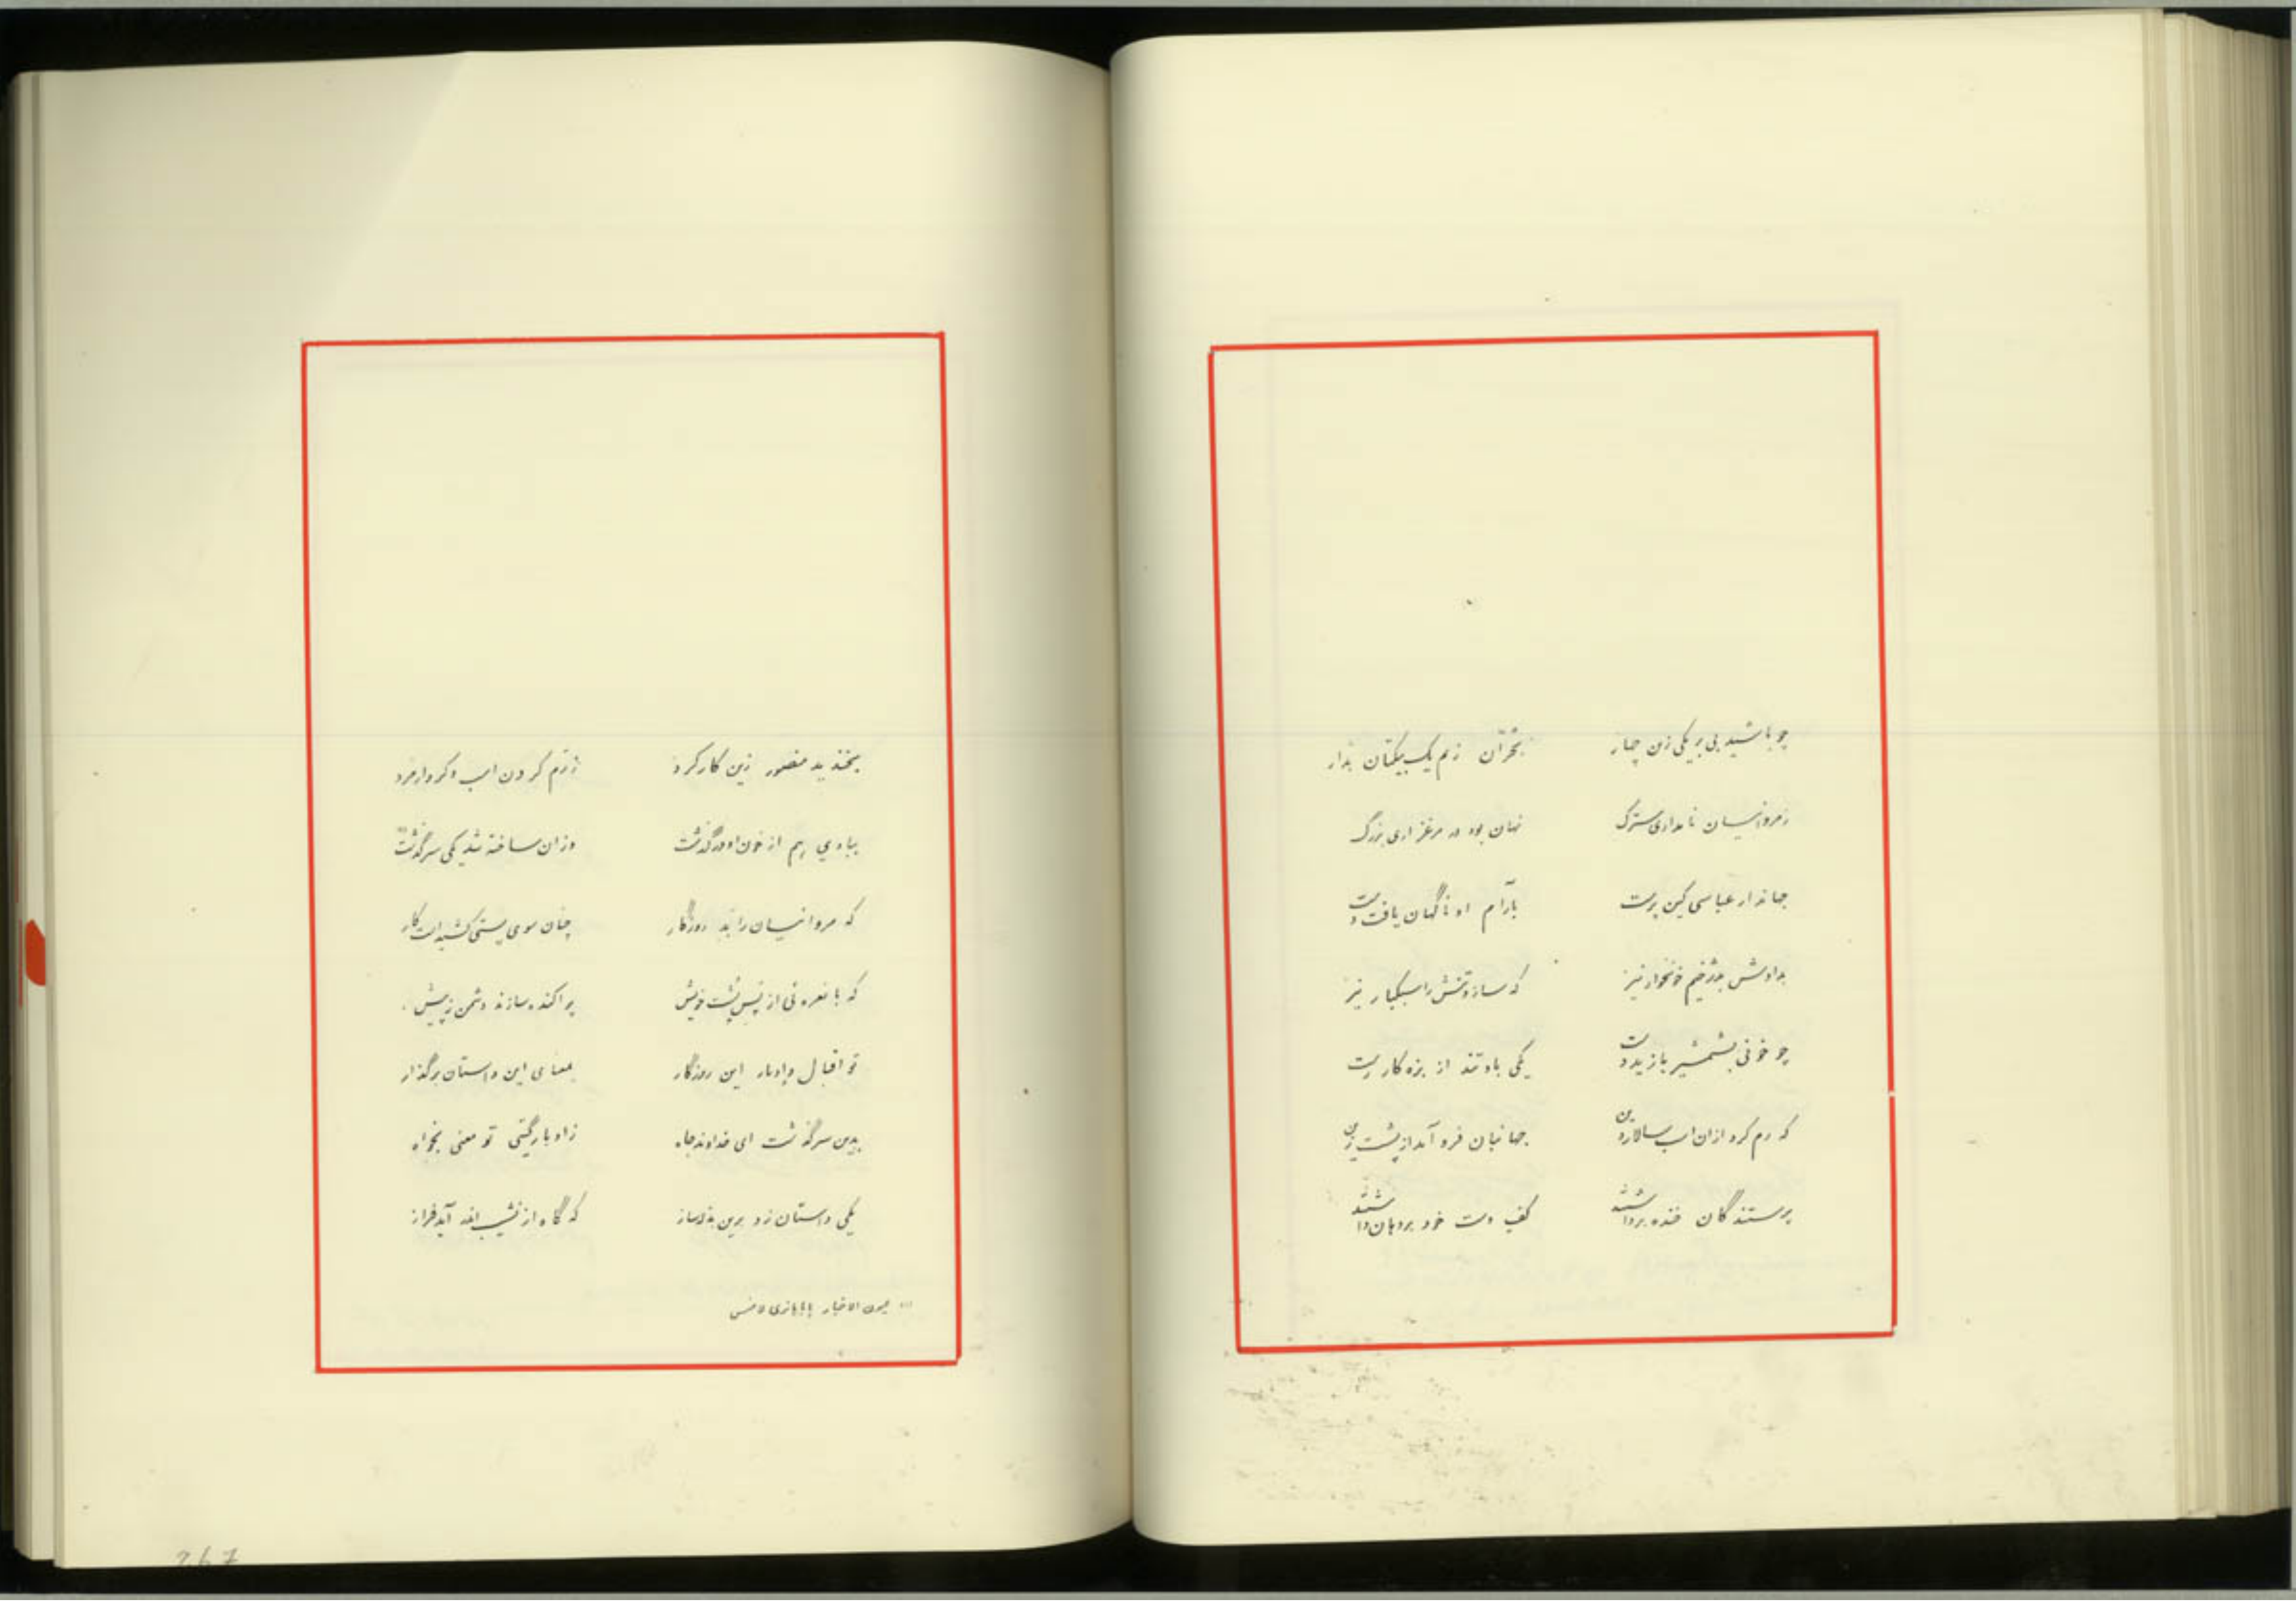 چو باشید بی بر یکی زن چهار
بخوان زهر یک بیکتان بدار
ز مروانیان نامداری سترک
نهان بود در مرغزاری بزرگ
جهاندار عباسی کین پرست
بآرام او ناگهان یافت دست
بدادش بدژخیم خونخوار نیز
که سازد تنش را سبکبار نیز
چو خونی بشمشیر یازید دست
یکی باد تند از بزه کار جست
که رم کرد ازان اسب سالار دین
جهانبان فرو آمد از پشت زین
پرستندگان خنده برداشتند
کف دست خود بر دهان داشتند
بخندید منصور زین کارکرد
ز رم کردن اسب و کردار مرد
ببادی رهم از خون او درگذشت
وزان ساخته شد یکی سرگذشت
که مروانیان را بد روزگار
چنان سوی پستی کشید است کار
که با نعره ئی از پس پشت خویش
پراکنده سازند دشمن ز پیش
تو اقبال و ادبار این روزگار
بمعنای این داستان برگذار
بدین سرگذشت ای خداوند جاه
ز ادبار گیتی تو معنی بخواه
یکی داستان زد برین بذله ساز
که گاه از نشیب اندر آید فراز
عیون الاخبار
267